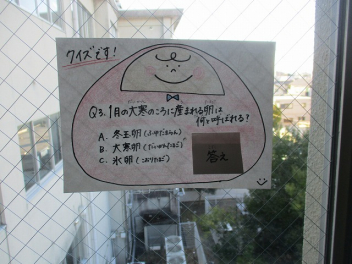 クイズです!
Q3. 1月の大寒のころに産まれる卵は
何と呼ばれる?
A. 冬玉卵(ふゆたまらん)
B. 大寒卵(だいかんたまご)
C. 氷卵(こおりたまご)
答え